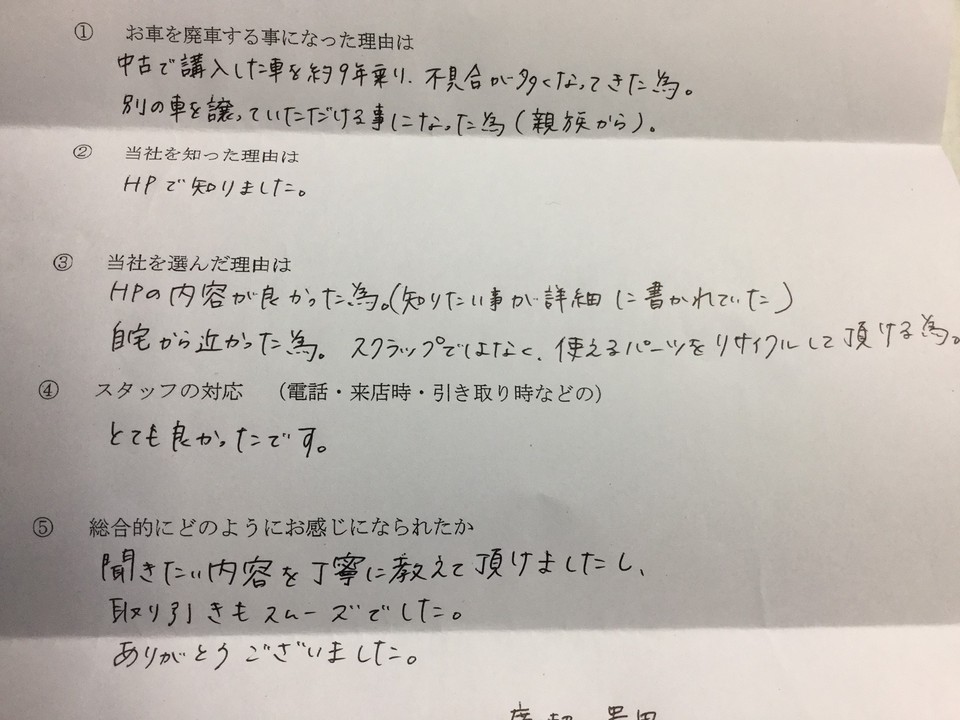 ① お車を廃車する事になった理由は
中古で購入した車を約9年乗り、不具合が多くなってきた為。
別の車を譲っていただける事になった為(親族から)。
② 当社を知った理由は
HPで知りました。
③ 当社を選んだ理由は
HPの内容が良かった為。(知りたい事が詳細に書かれていた)
自宅から近かった為。スクラップではなく、使えるパーツをリサイクルして頂ける為。
④ スタッフの対応 (電話・来店時・引き取り時などの)
とても良かったです。
⑤ 総合的にどのようにお感じになられたか
聞きたい内容を丁寧に教えて頂けましたし、
取り引きもスムーズでした。
ありがとうございました。